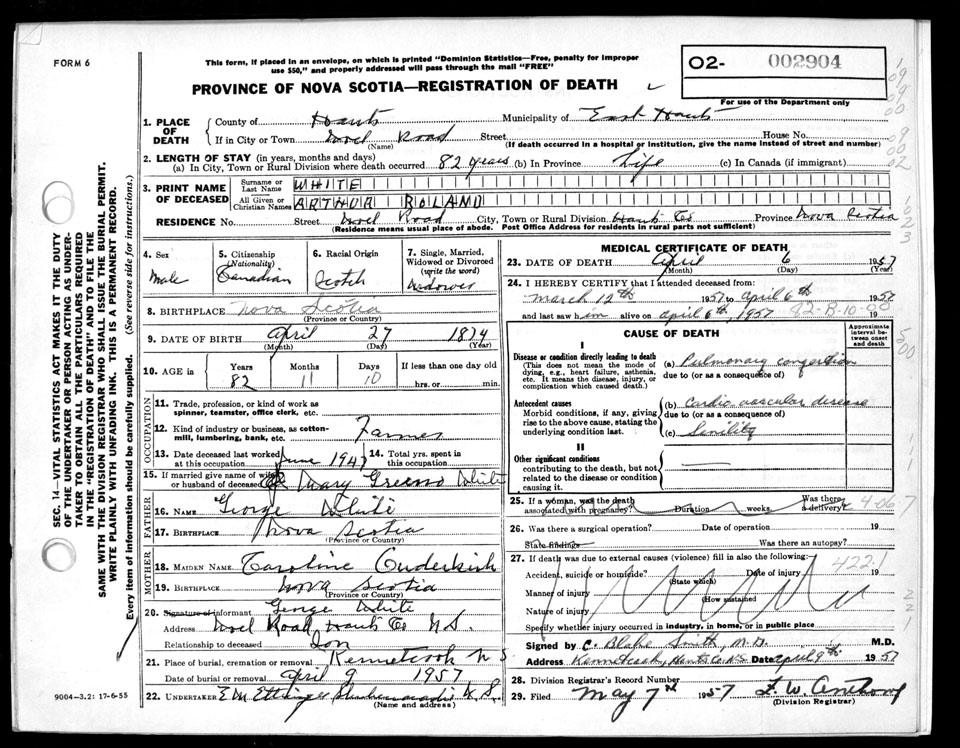 FORM 6
This form, if placed in an envelope, on which is printed "Dominion Statistics—Free, penalty for improper
use $50," and properly addressed will pass through the mail "FREE"
O2- 002904
PROVINCE OF NOVA SCOTIA—REGISTRATION OF DEATH
For use of the Department only
1. PLACE OF DEATH
County of Hants Municipality of East Hants
If in City or Town Noel Road Street House No.
(Name) (If death occurred in a hospital or institution, give the name instead of street and number)
2. LENGTH OF STAY (in years, months and days)
(a) In City, Town or Rural Division where death occurred 82 years (b) In Province Life (c) In Canada (if immigrant)
3. PRINT NAME OF DECEASED
Surname or Last Name WHITE
All Given or Christian Names ARTHUR ROLAND
RESIDENCE No. Street Noel Road City, Town or Rural Division Hants Co Province Nova Scotia
(Residence means usual place of abode. Post Office Address for residents in rural parts not sufficient)
4. Sex
Male
5. Citizenship
(Nationality)
Canadian
6. Racial Origin
Scotch
7. Single, Married,
Widowed or Divorced
(write the word)
Widower
8. BIRTHPLACE Nova Scotia
(Province or Country)
9. DATE OF BIRTH April 27 1874
(Month) (Day) (Year)
10. AGE in
Years Months Days If less than one day old
82 11 10 hrs. or min.
OCCUPATION
11. Trade, profession, or kind of work as
spinner, teamster, office clerk, etc.
12. Kind of industry or business, as cotton-
mill, lumbering, bank, etc. Farmer
13. Date deceased last worked
at this occupation June 1947
14. Total yrs. spent in
this occupation
15. If married give name of wife
or husband of deceased Mary Greeno White
FATHER
16. NAME George White
17. BIRTHPLACE Nova Scotia
(Province or Country)
MOTHER
18. MAIDEN NAME Caroline Ouderkirk
19. BIRTHPLACE Nova Scotia
(Province or Country)
20. Signature of informant George White
Address Noel Road Hants Co N.S.
Relationship to deceased Son
21. Place of burial, cremation or removal Kennetcook N S
Date of burial or removal April 9 1957
22. UNDERTAKER E M Ettinger Shubenacadie N.S.
(Name and address)
MEDICAL CERTIFICATE OF DEATH
23. DATE OF DEATH April 6 1957
(Month) (Day) (Year)
24. I HEREBY CERTIFY that I attended deceased from:
March 12th 1957 to April 6th 1957
and last saw him alive on April 6th, 1957 82-B-10-00 19
CAUSE OF DEATH
Approximate interval between onset and death
I
Disease or condition directly leading to death
(This does not mean the mode of
dying, e.g., heart failure, asthenia,
etc. It means the disease, injury, or
complication which caused death.)
(a) Pulmonary congestion
due to (or as a consequence of)
Antecedent causes
Morbid conditions, if any, giving
rise to the above cause, stating the
underlying condition last.
(b) Cardio vascular disease
due to (or as a consequence of)
(c) Senility
II
Other significant conditions
contributing to the death, but not
related to the disease or condition
causing it.
25. If a woman, was the death
associated with pregnancy? Duration weeks. Was there a delivery?
26. Was there a surgical operation? Date of operation 19
State findings Was there an autopsy?
27. If death was due to external causes (violence) fill in also the following:
4221
Accident, suicide or homicide? Date of injury 19
(State which)
Manner of injury
(How sustained)
Nature of injury
Specify whether injury occurred in industry, in home, or in public place
Signed by C. Blake Smith, M.D. M.D.
Address Kennetcook, Hants Co. N.S. Date April 9th 1957
28. Division Registrar's Record Number
29. Filed May 7th 1957 F. W. Anthony
(Division Registrar)
SEC. 14—VITAL STATISTICS ACT MAKES IT THE DUTY
OF THE UNDERTAKER OR PERSON ACTING AS UNDER-
TAKER TO OBTAIN ALL THE PARTICULARS REQUIRED
IN THE "REGISTRATION OF DEATH" AND TO FILE THE
SAME WITH THE DIVISION REGISTRAR WHO SHALL ISSUE THE BURIAL PERMIT.
WRITE PLAINLY WITH UNFADING INK. THIS IS A PERMANENT RECORD.
Every item of information should be carefully supplied. (See reverse side for instructions.)
9004—3.2: 17-6-55